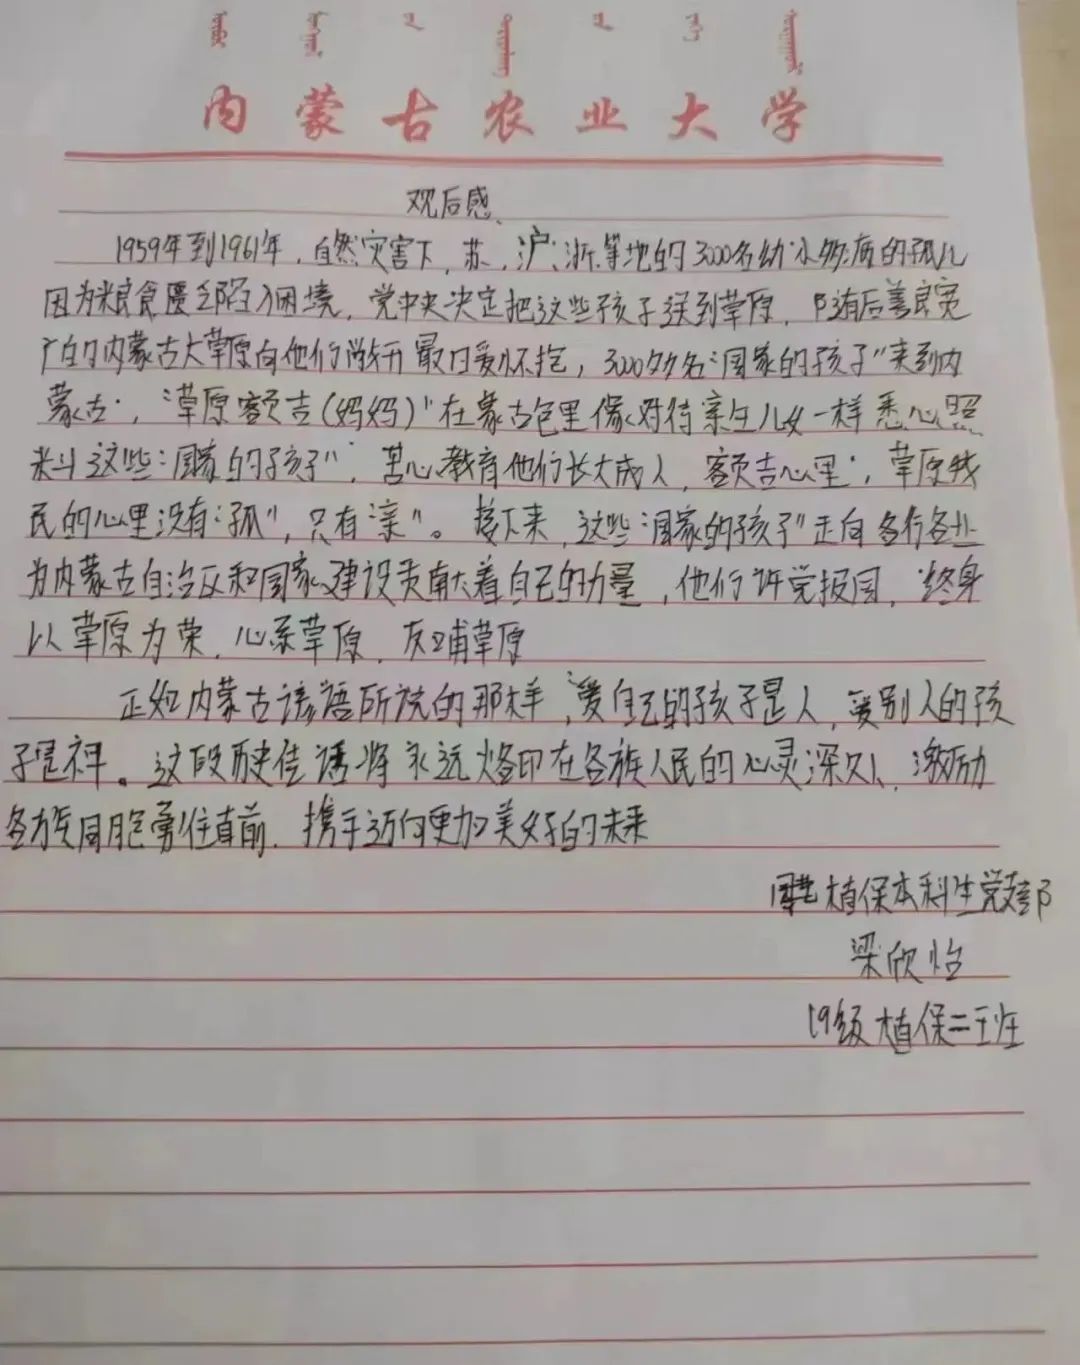 内蒙古农业大学
观后感
1959年到1961年,自然灾害下,苏、沪、浙等地的3000名幼小多病的孤儿
因为粮食匮乏陷入困境,党中央决定把这些孩子送到草原,随后善良宽
广的内蒙古大草原向他们敞开最可爱怀抱,3000多名“国家的孩子”来到内
蒙古,“草原额吉(妈妈)”在蒙古包里像对待亲生儿女一样悉心照
料这些“国家的孩子”,苦心教育他们长大成人,额吉心里,草原牧
民的心里没有“孤”,只有“亲”。接下来,这些“国家的孩子”走向各行各业
为内蒙古自治区和国家建设贡献着自己的力量,他们许党报国,终身
以草原为荣,心系草原,反哺草原
正如内蒙古谚语所说的那样,“爱自己的孩子是人,爱别人的孩
子是神。这段历史佳话将永远烙印在各族人民的心灵深处、激励
各族同胞勇往直前,携手迈向更加美好的未来
植保本科生党支部
梁欣怡
19级植保二班